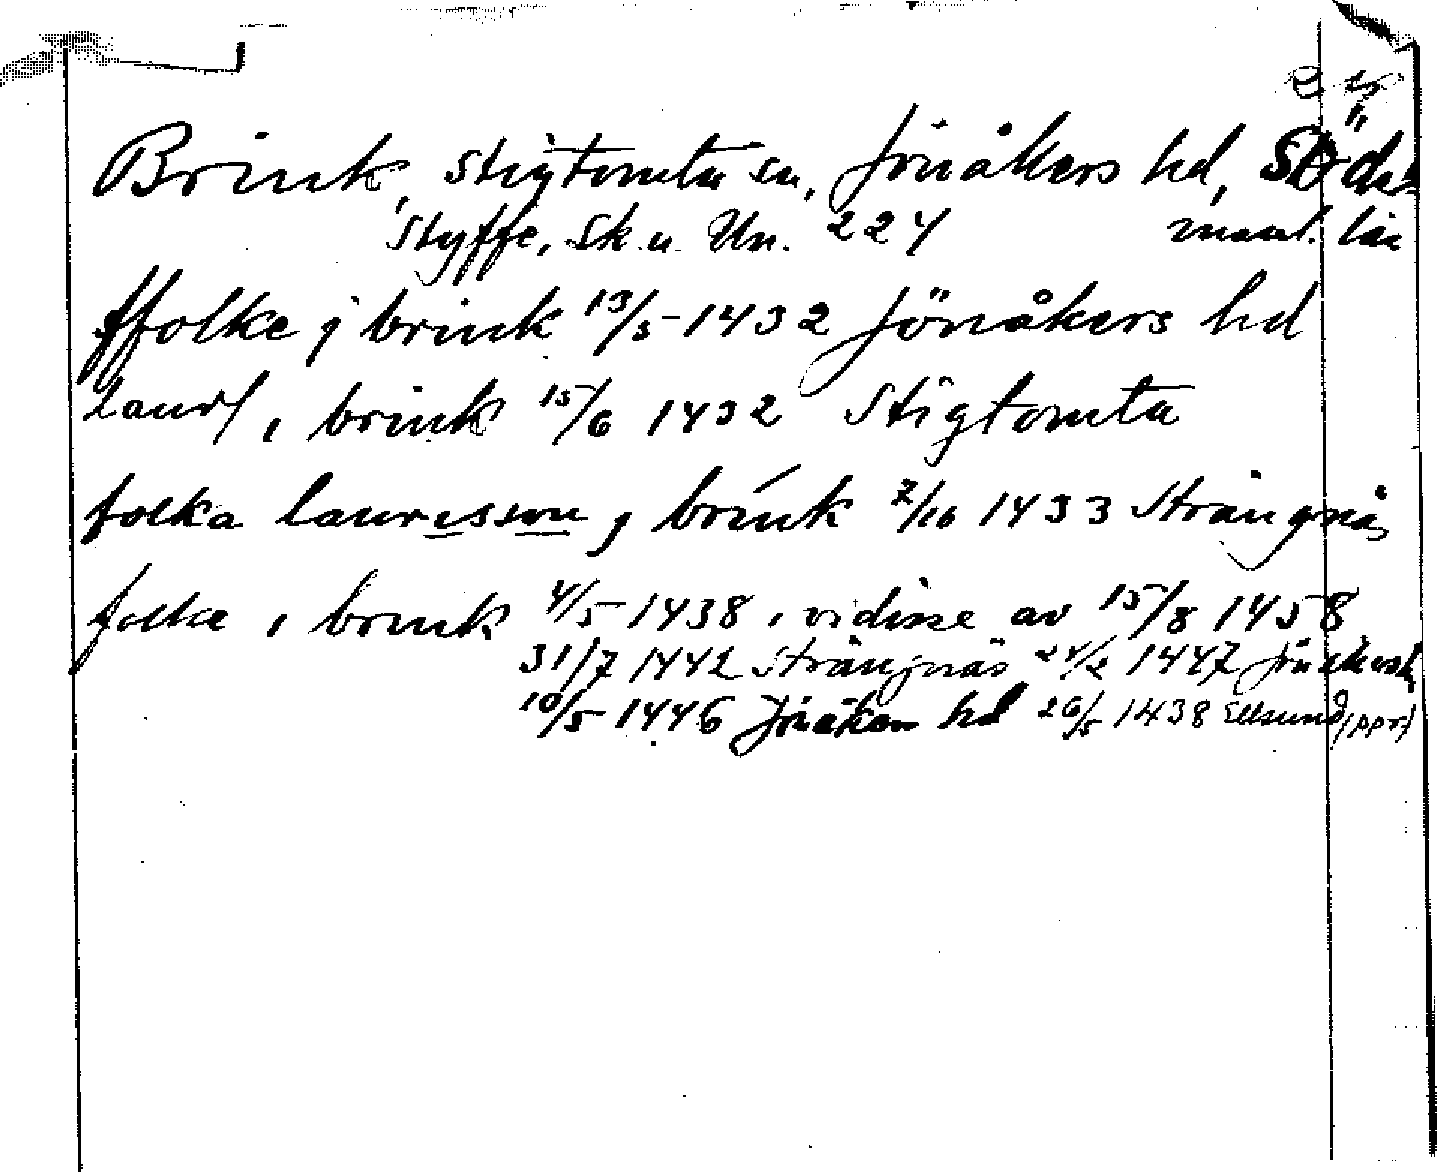 Brink, Stigtomta sn, Jönåkers hd, Söder
Styffe, Sk. u. Un. 224 manl. län
ffolke j brink 13/5 1432 Jönåkers hd
laur/ i brink 15/6 1432 Stigtomta
folka laurisson j brink 2/10 1433 Strängnäs
folke i brink 4/5 1438 i vidisse av 15/8 1458
31/7 1442 Strängnäs 1447 Jönåkersh
10/5 1446 Jönåkers hd 26/5 1438 Ellsund (ppr)